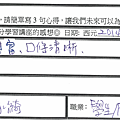 ，請簡單寫3句心得，讓我們未來可以為
分學習講座的感想◎日期：西元 2014
富、口條清晰．
職業：學生